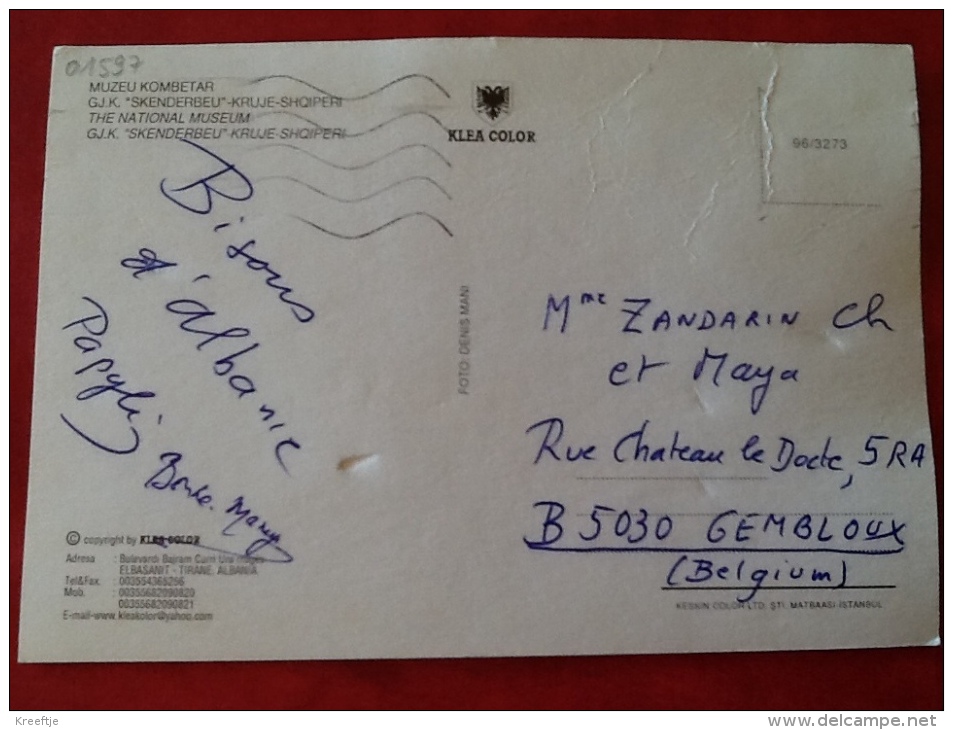 01597
MUZEU KOMBETAR
GJ.K. "SKENDERBEU"-KRUJE-SHQIPERI
THE NATIONAL MUSEUM
GJ.K. "SKENDERBEU"-KRUJE-SHQIPERI
KLEA COLOR
96/3273
Bisous
d'Albanie
Papyli
FOTO: DENIS MANI
Mme ZANDARIN Ch
et Maya
Rue Chateau le Docte, 5RA
B 5030 GEMBLOUX
(Belgium)
© copyright by KLEA COLOR
Adresa : Bulevardi Bajram Curri Ura
ELBASANIT - TIRANE, ALBANIA
Tel&Fax : 003554365256
Mob. : 00355682090820
00355682090821
E-mail-www.kleakolor@yahoo.com
KESKIN COLOR LTD. ŞTİ. MATBAASI-İSTANBUL
Kreeftje
www.delcampe.net